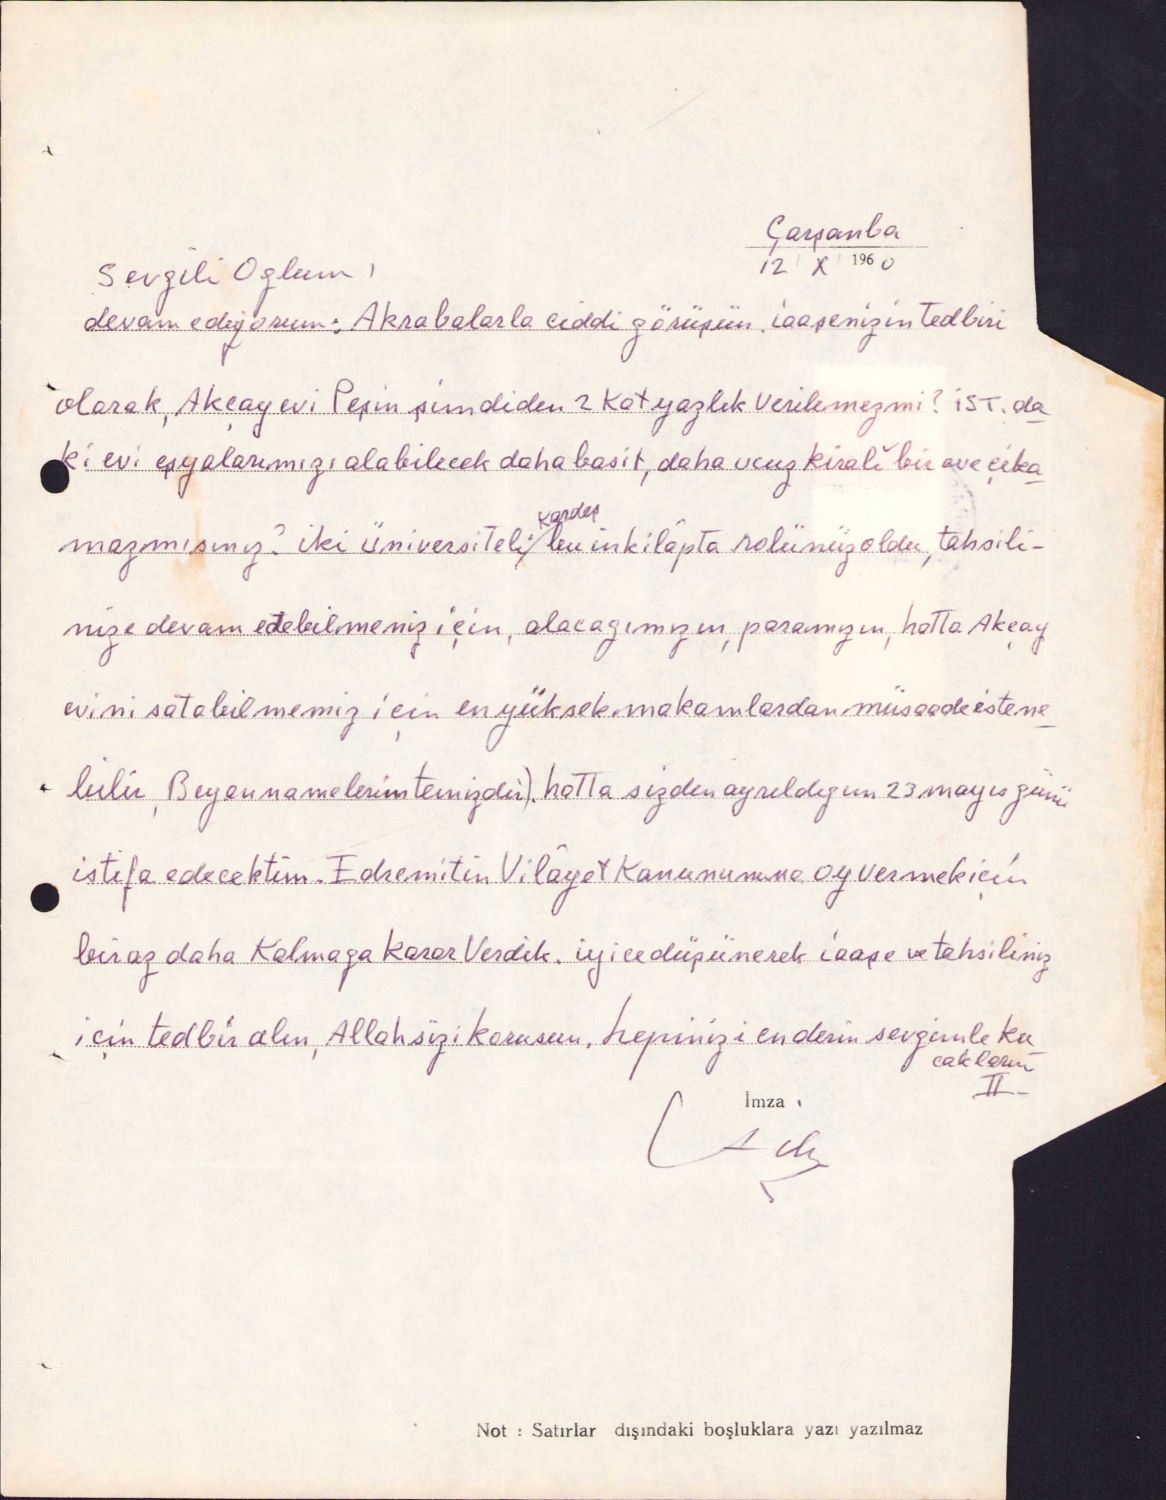 Çarşanba
12 X 1960
Sevgili Oğlum,
devam ediyorum: Akrabalarla ciddi görüşün. iaaşenizin tedbiri
olarak, Akçay evi Peşin şimdiden 2 Kat yazlık verilemezmi? İST. da
ki evi eşyalarımızı alabilecek daha basit, daha ucuz kiralı bir eve çıka
mazmısınız? iki üniversiteli kardeş bu inkilâpta rolünüz oldu, tahsili-
nize devam edebilmeniz için, alacağımızın, paramızın, hatta Akçay
evini satabilmemiz için en yüksek makamlardan müsaade istene
bilir, Beyannamelerim temizdir). hatta sizden ayrıldığım 23 mayıs günü
istifa edecektim. Edremitin Vilâyet Kanununa oy vermek için
biraz daha Kalmağa karar Verdik. iyice düşünerek iaaşe ve tahsiliniz
için tedbir alın, Allah sizi korusun. hepinizi en derin sevgimle ku
caklarım
II-
İmza
Not : Satırlar dışındaki boşluklara yazı yazılmaz